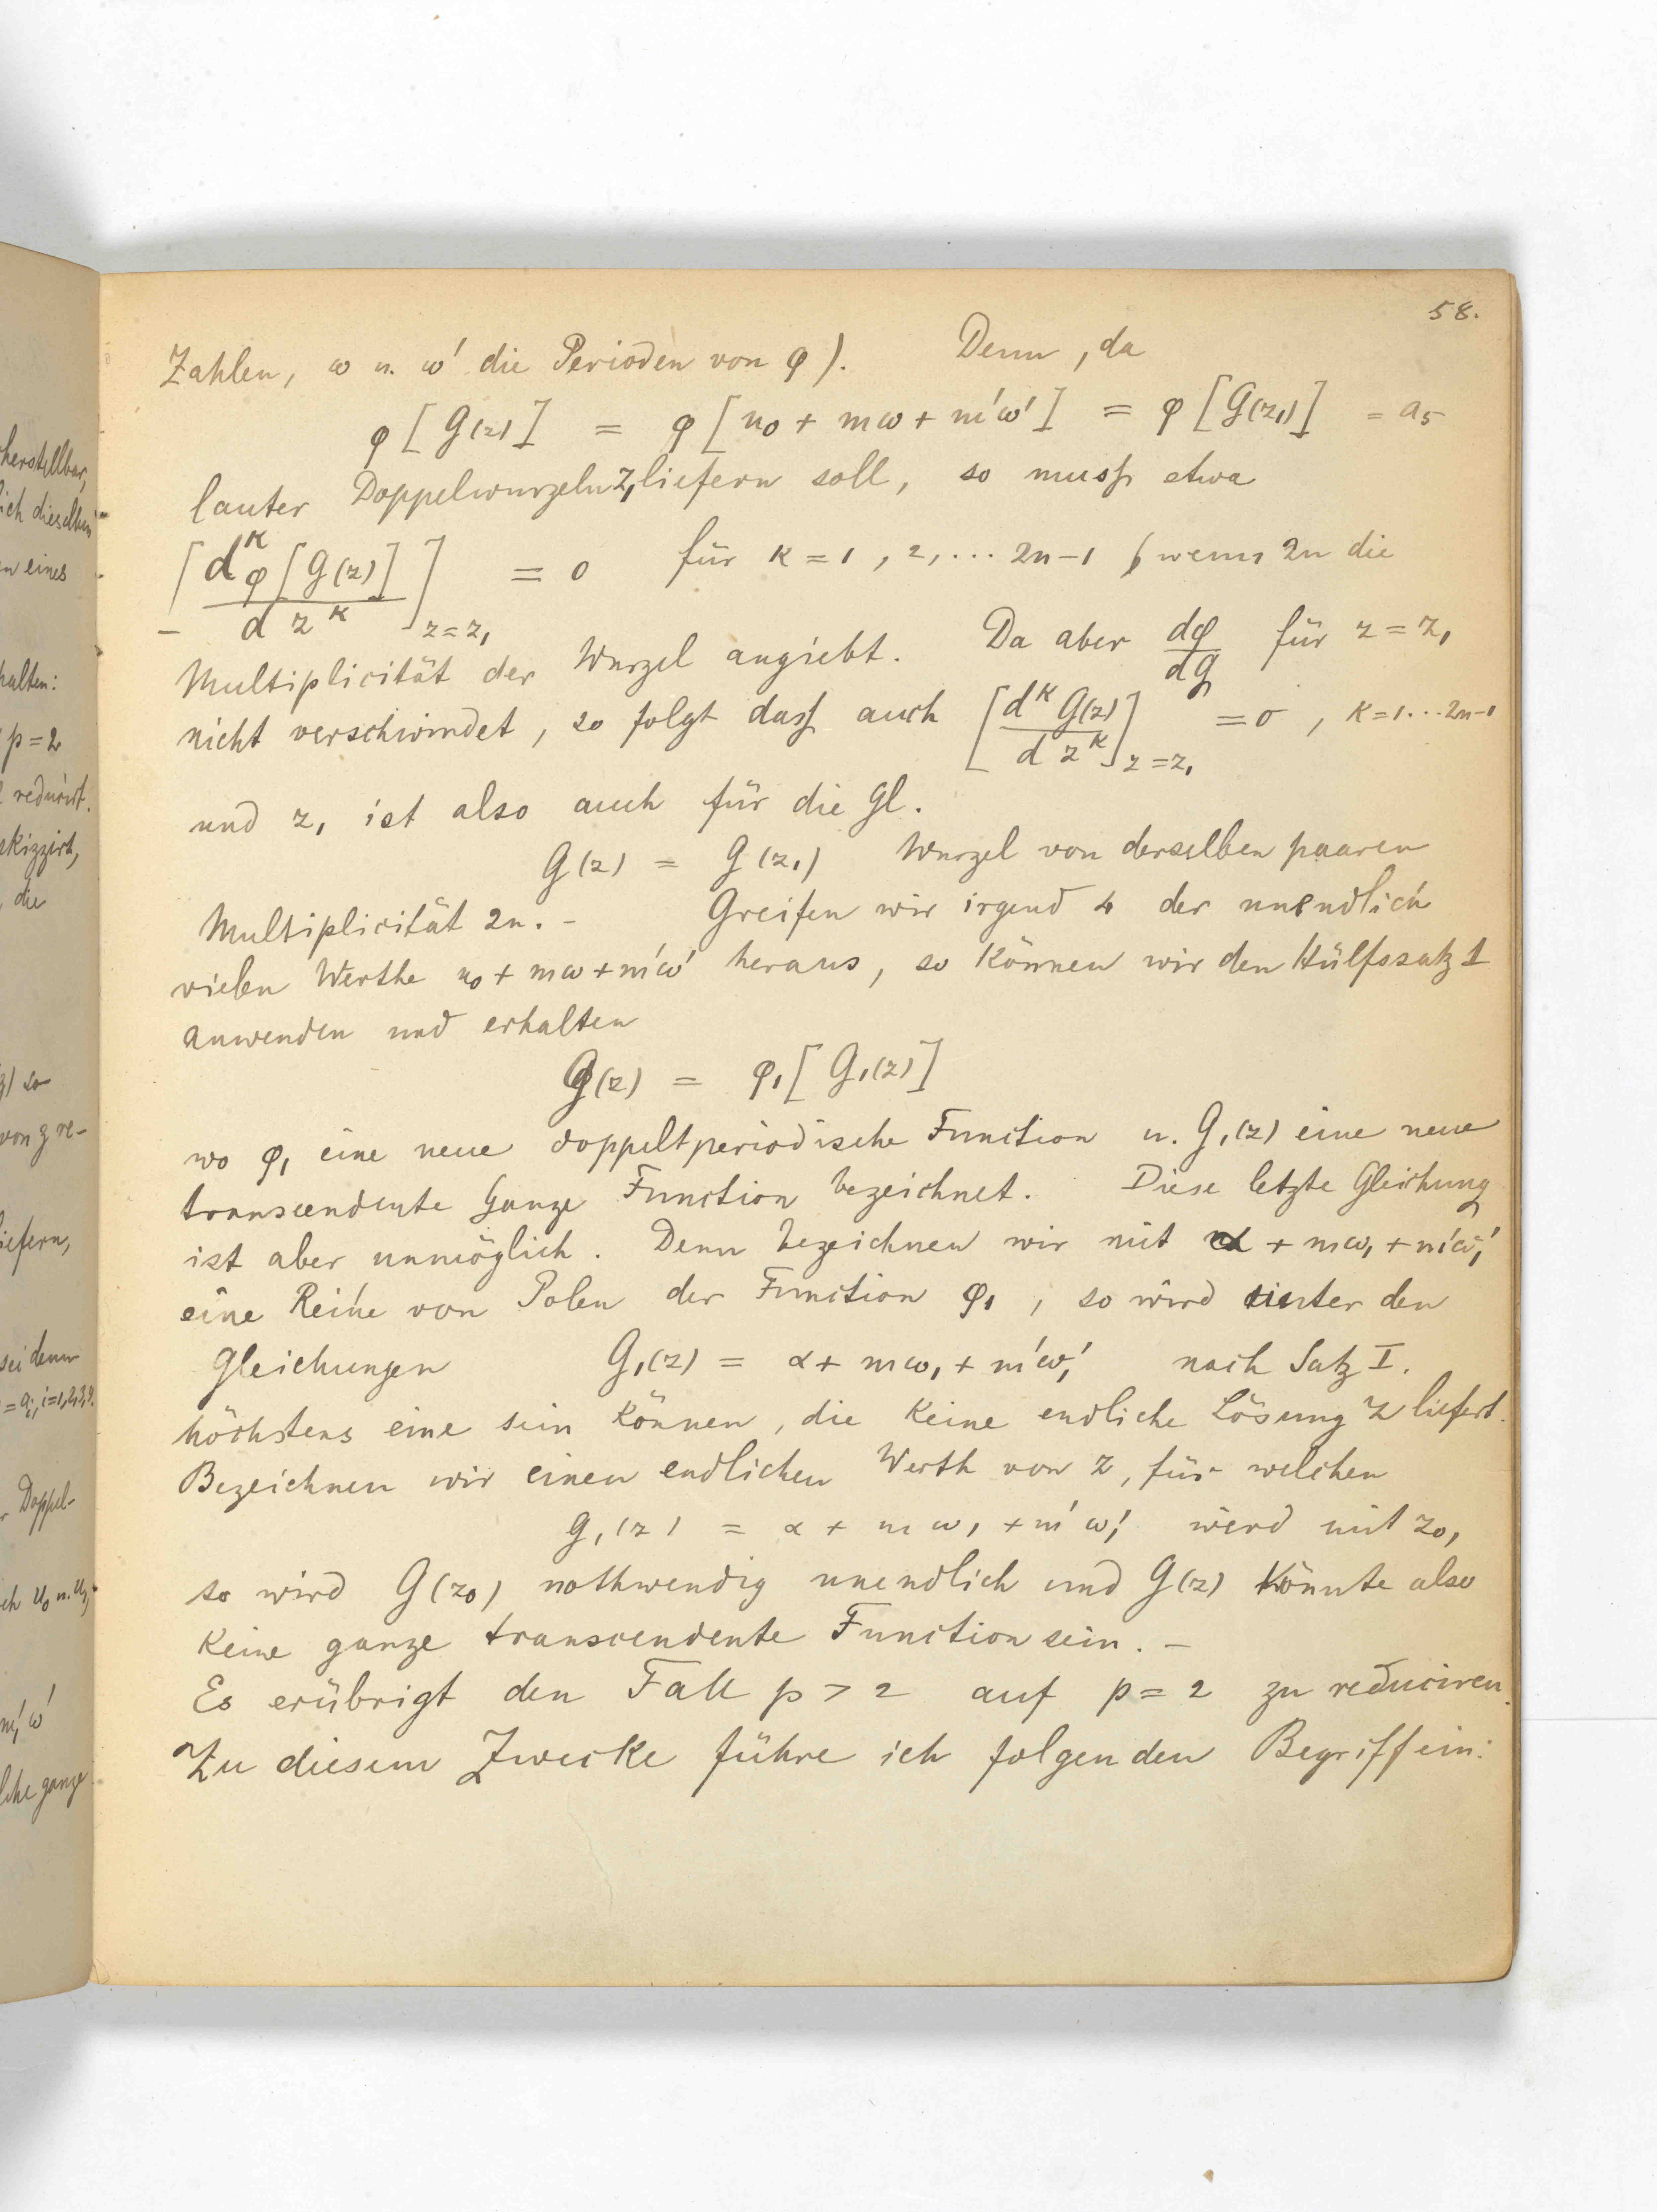 58.
Zahlen, ω u. ω′ die Perioden von φ). Denn, da
φ[G(z)] = φ[u₀ + mω + m′ω′] = φ[G(z₁)] = a₅
lauter Doppelwurzeln z₁ liefern soll, so muss etwa
[d^κ φ[G(z)] / d z^κ]_{z=z₁} = 0 für κ = 1, 2, ... 2n−1 (wenn 2n die
Multiplicität der Wurzel angiebt. Da aber dφ/dG für z = z₁
nicht verschwindet, so folgt dass auch [d^κ G(z) / d z^κ]_{z=z₁} = 0, κ=1...2n−1
und z₁ ist also auch für die Gl.
G(z) = G(z₁) Wurzel von derselben paaren
Multiplicität 2n. – Greifen wir irgend 4 der unendlich
vielen Werthe u₀ + mω + m′ω′ heraus, so können wir den Hülfssatz 1
anwenden und erhalten
G(z) = φ₁[G₁(z)]
wo φ₁ eine neue doppeltperiodische Function u. G₁(z) eine neue
transcendente ganze Function bezeichnet. Diese letzte Gleichung
ist aber unmöglich. Denn bezeichnen wir mit α + mω₁ + m′ω₁′
eine Reihe von Polen der Function φ₁, so wird unter den
Gleichungen G₁(z) = α + mω₁ + m′ω₁′ nach Satz I.
höchstens eine sein können, die keine endliche Lösung z liefert.
Bezeichnen wir einen endlichen Werth von z, für welchen
G₁(z) = α + mω₁ + m′ω₁′ wird mit z₀,
so wird G(z₀) nothwendig unendlich und G(z) könnte also
keine ganze transcendente Function sein. –
Es erübrigt den Fall p > 2 auf p = 2 zu reduciren.
Zu diesem Zwecke führe ich folgenden Begriff ein:
herstellbar,
ich dieselben
en eines
halten:
p = 2
reducirt.
skizzirt,
die
so
von z re-
liefern,
sei denn
= aᵢ, i=1,2,3,4.
Doppel-
u₀ u. u₁,
m′, ω′
ganze